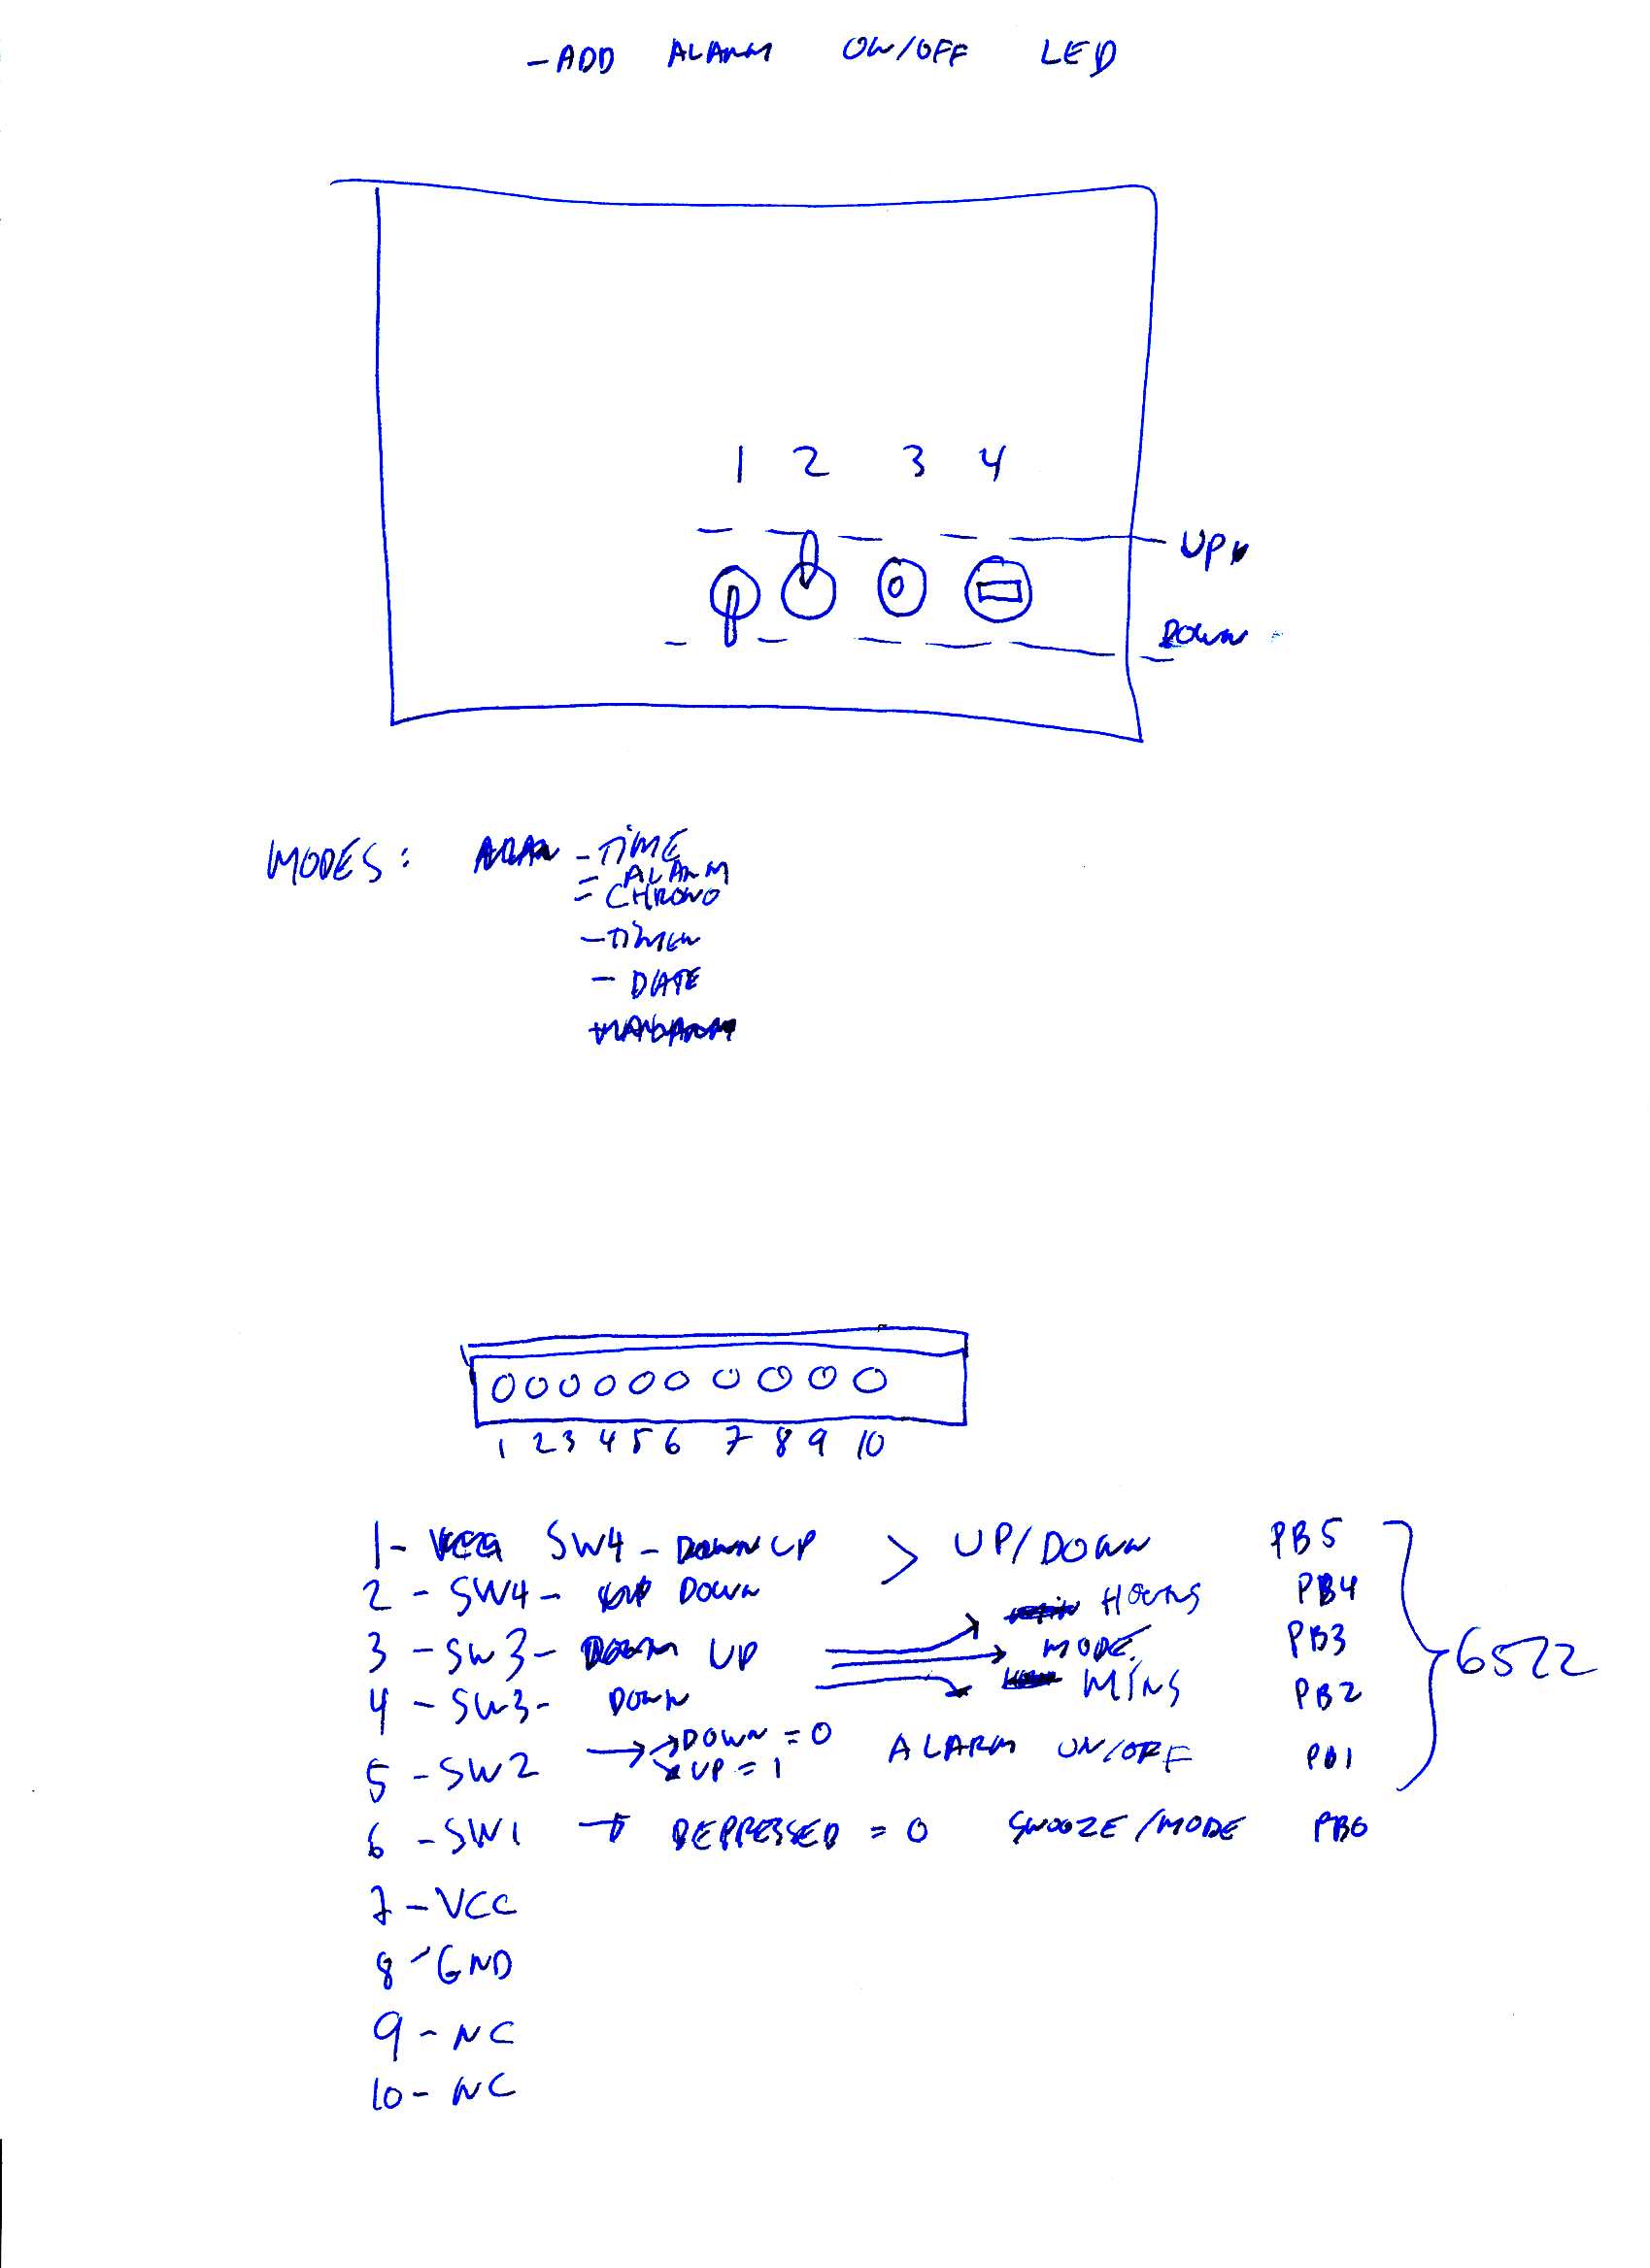 - ADD ALARM ON/OFF LED
1 2 3 4
UP
DOWN
MODES: - TIME
- ALARM
- CHRONO
- TIMER
- DATE
1 2 3 4 5 6 7 8 9 10
1 - SW4 - UP > UP/DOWN PB5
2 - SW4 - DOWN HOURS PB4
3 - SW3 - UP MODE PB3
4 - SW3 - DOWN MINS PB2
6522
5 - SW2 → DOWN = 0 ALARM ON/OFF PB1
UP = 1
6 - SW1 → DEPRESSED = 0 SNOOZE/MODE PB0
7 - VCC
8 - GND
9 - NC
10 - NC